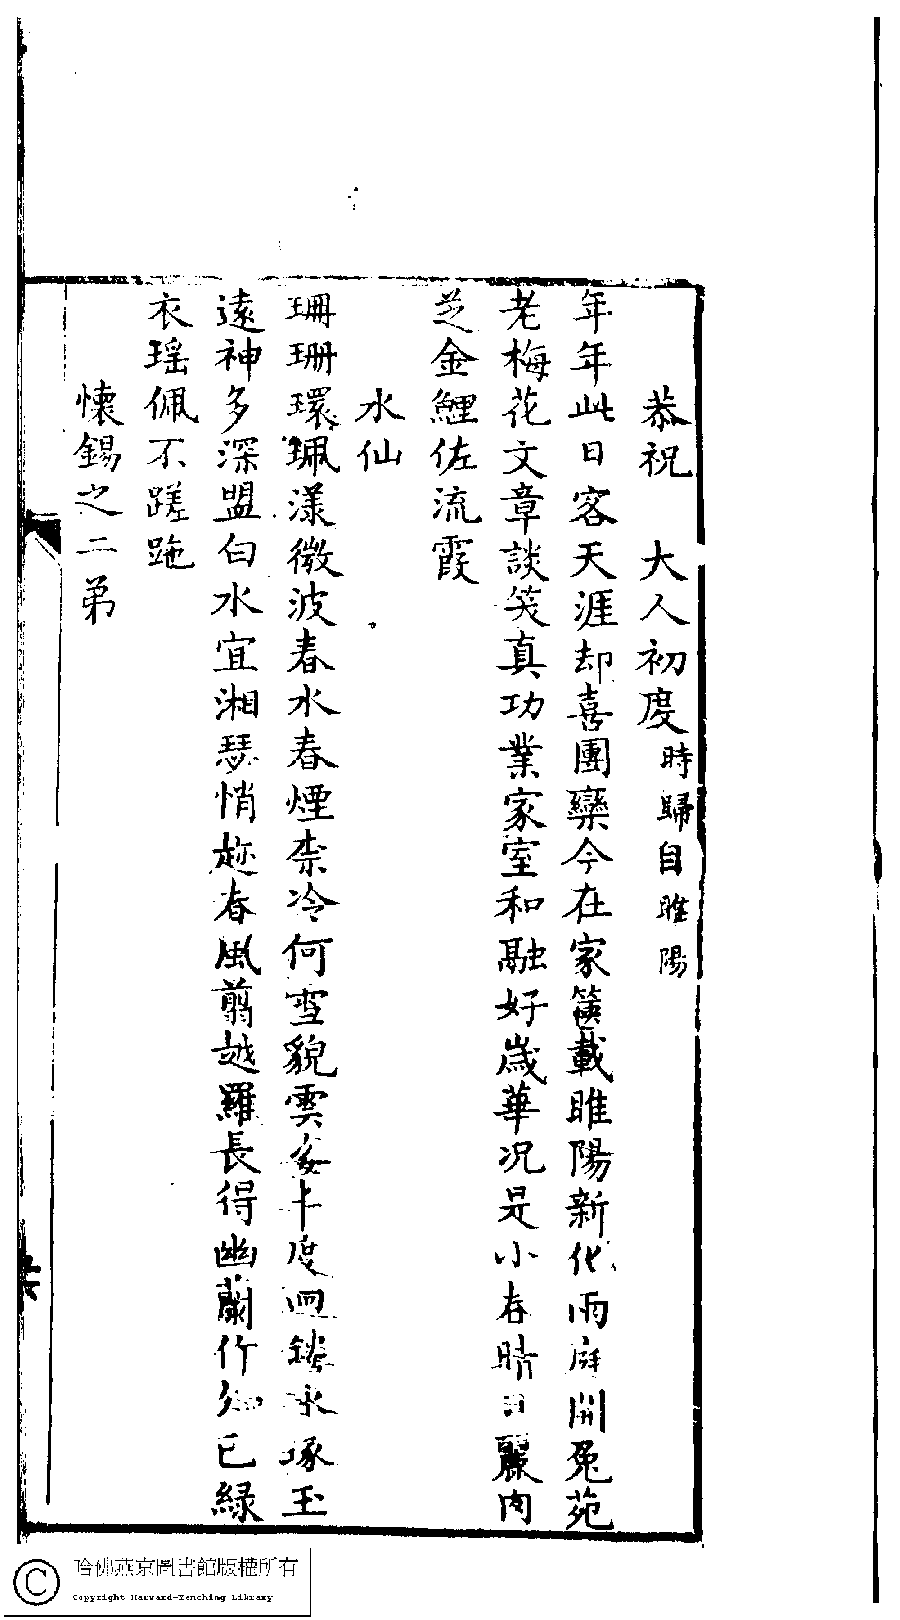 恭祝　大人初度時歸自睢陽
年年此日客天涯却喜團欒今在家篋載睢陽新化雨庭開兔苑
老梅花文章談笑真功業家室和融好歲華况是小春晴日麗肉
芝金鯉佐流霞
水仙
珊珊環珮漾微波春水春煙柰冷何雪貌雲姿丰度迥鏤冰琢玉
遠神多深盟白水宜湘瑟悄趂春風翦越羅長得幽蘭作知己緑
衣瑶佩不蹉跎
懷錫之二弟
哈佛燕京圖書館版權所有
Copyright Harvard-Yenching Library